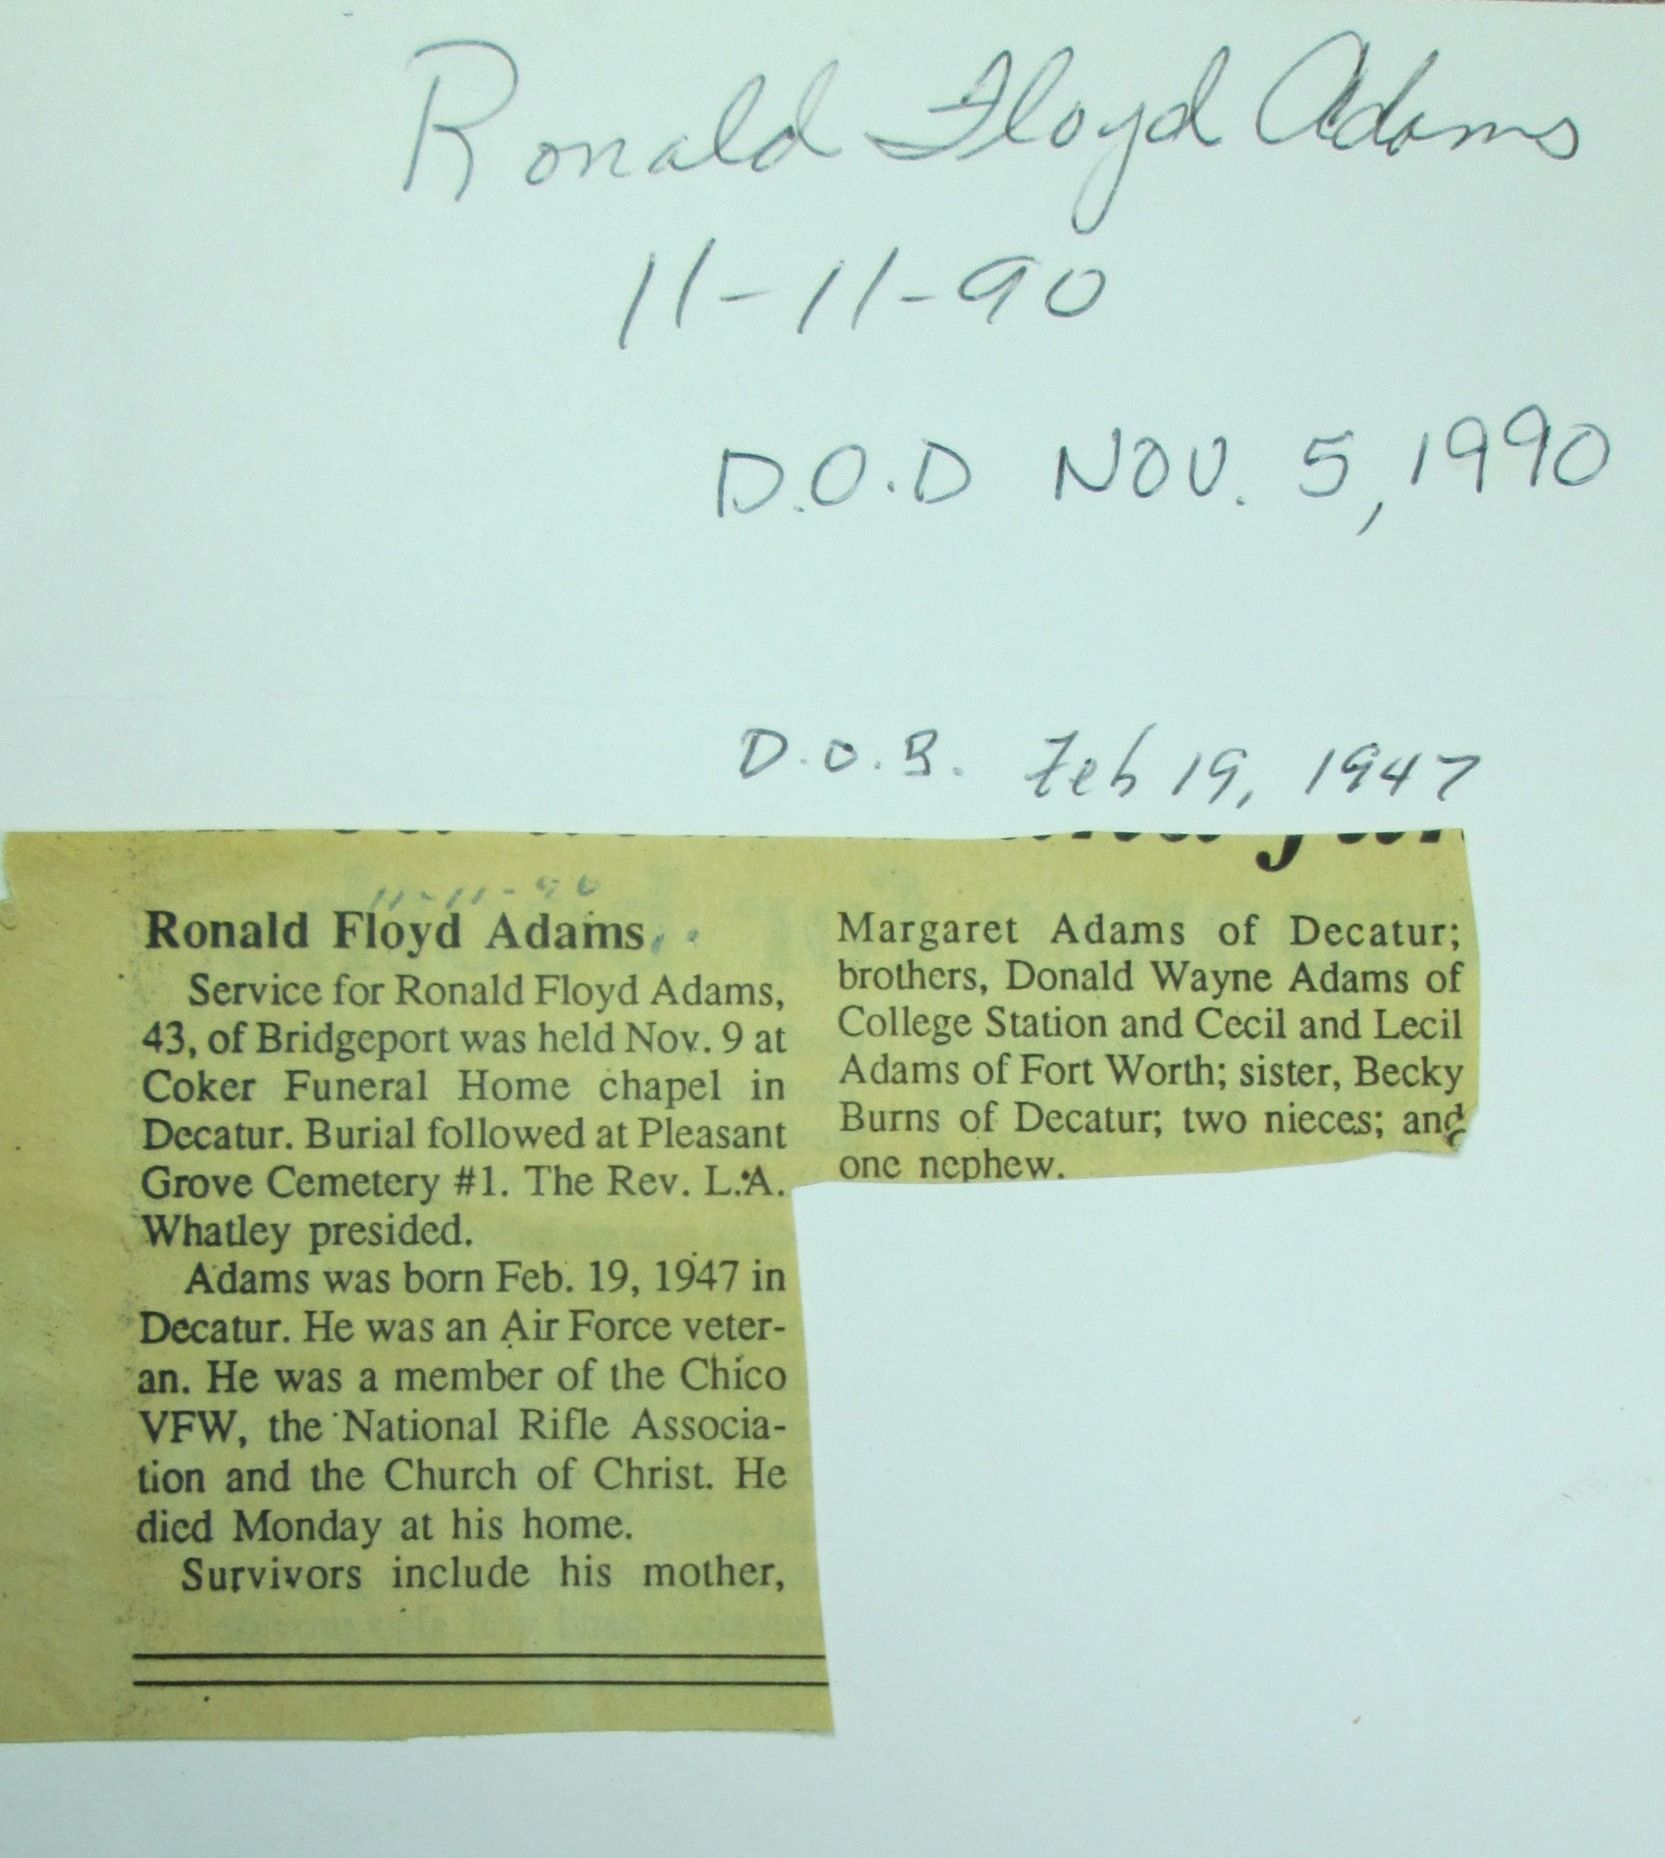 Ronald Floyd Adams
11-11-90
D.O.D NOV. 5, 1990
D.O.B. Feb 19, 1947
11-11-90
Ronald Floyd Adams
Service for Ronald Floyd Adams,
43, of Bridgeport was held Nov. 9 at
Coker Funeral Home chapel in
Decatur. Burial followed at Pleasant
Grove Cemetery #1. The Rev. L.A.
Whatley presided.
Adams was born Feb. 19, 1947 in
Decatur. He was an Air Force veter-
an. He was a member of the Chico
VFW, the National Rifle Associa-
tion and the Church of Christ. He
died Monday at his home.
Survivors include his mother,
Margaret Adams of Decatur;
brothers, Donald Wayne Adams of
College Station and Cecil and Lecil
Adams of Fort Worth; sister, Becky
Burns of Decatur; two nieces; and
one nephew.